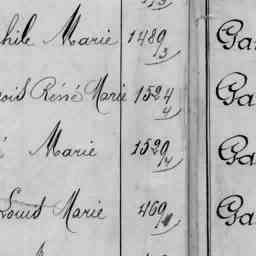 /3
phile Marie 1489/3 Ga
çois Réné Marie 1524/4 Ga
Marie 1529/4 Ga
Louis Marie 469/11 Ga